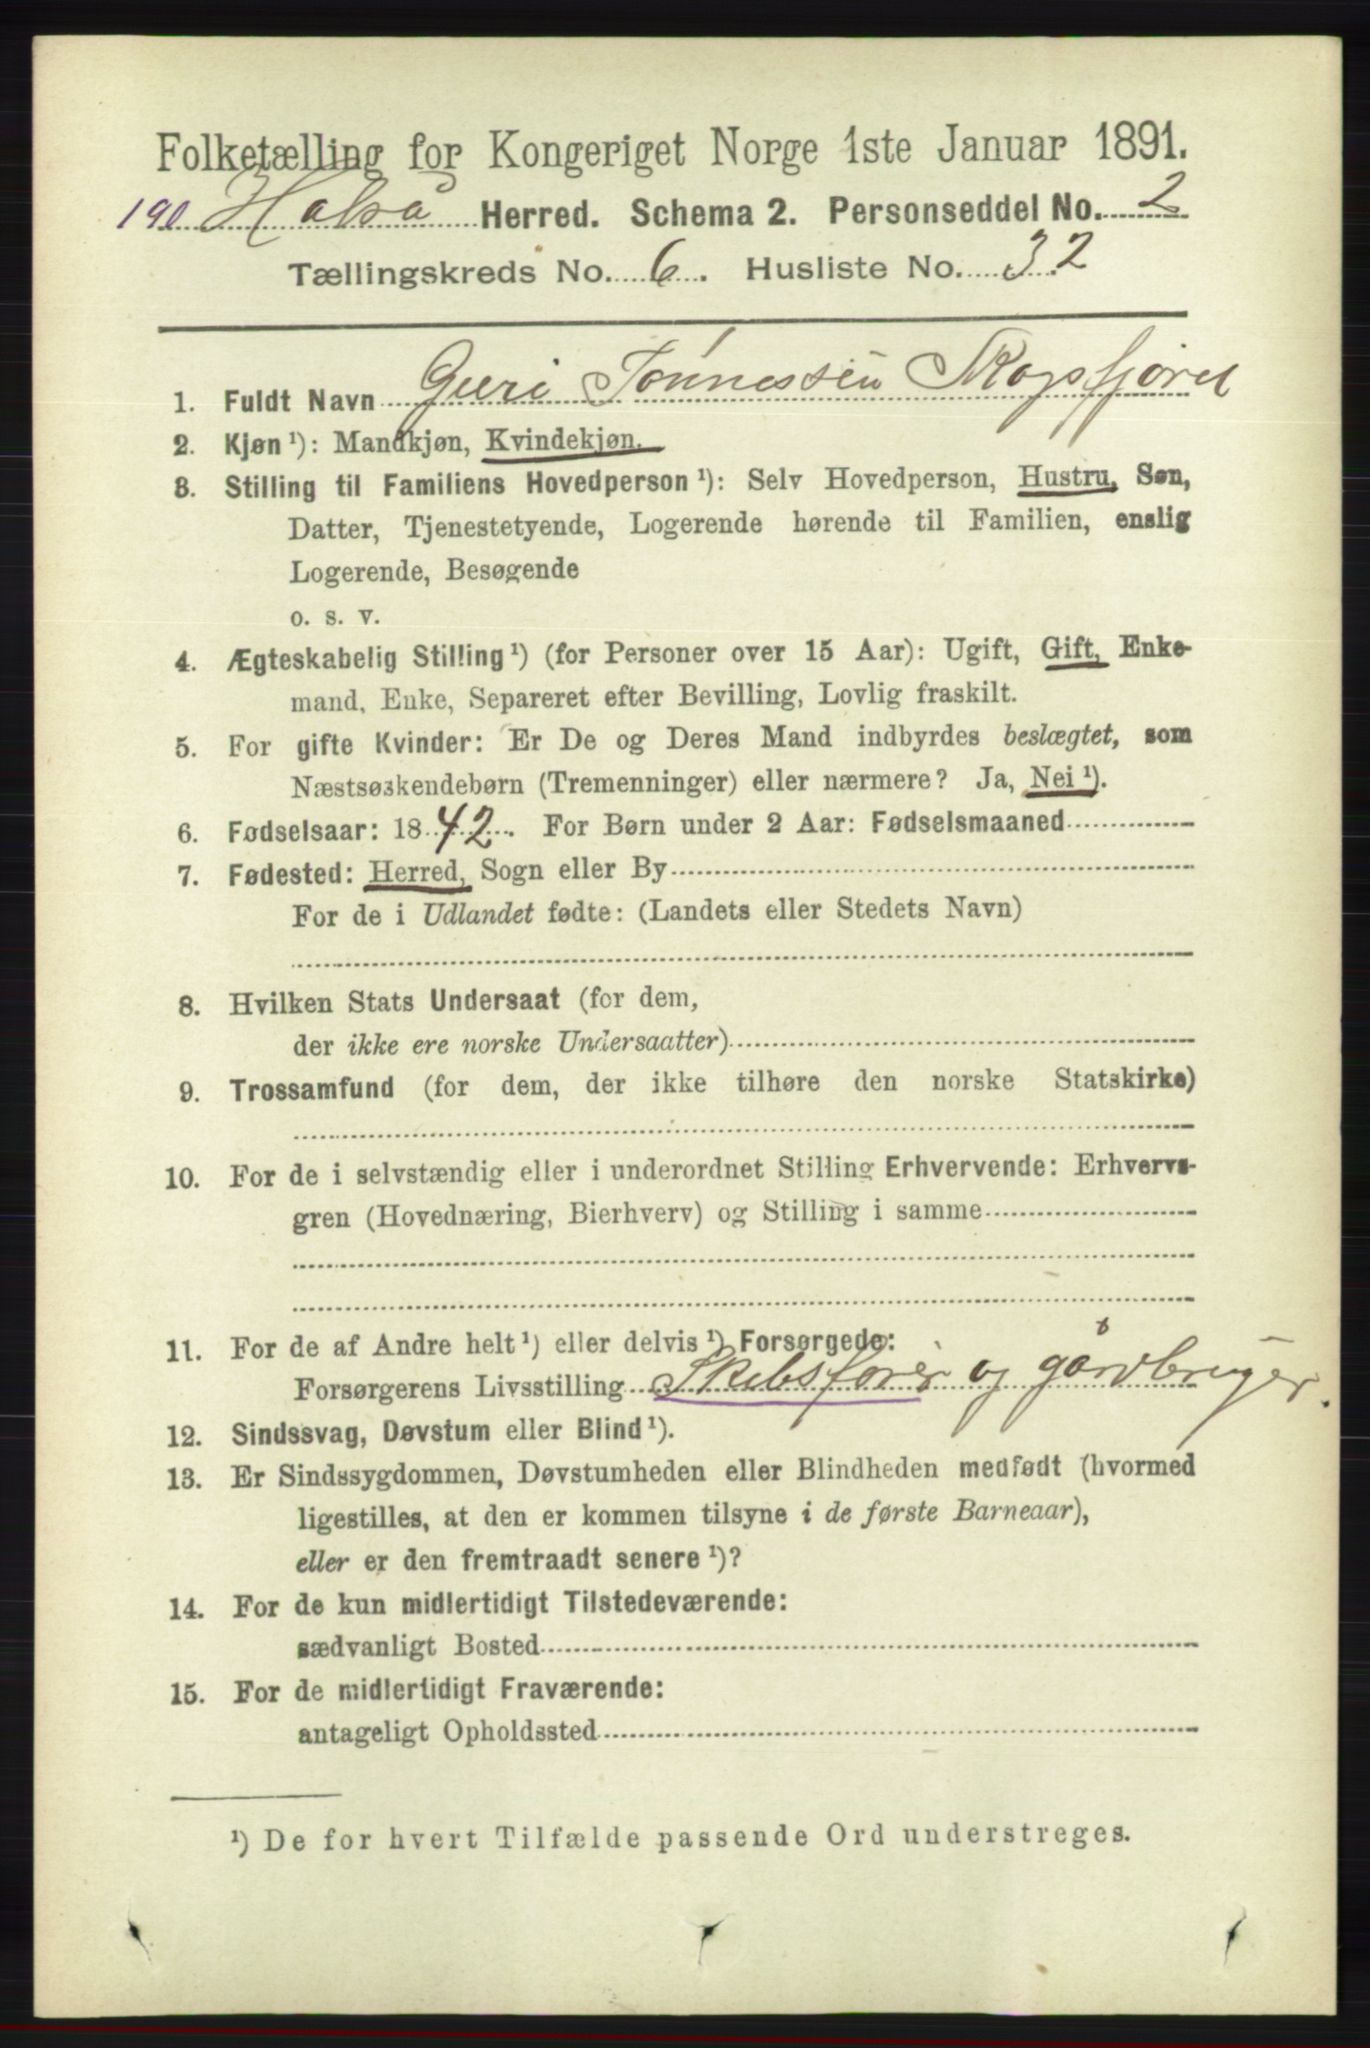 Folketælling for Kongeriget Norge 1ste Januar 1891.
190 Halså Herred. Schema 2. Personseddel No. 2
Tællingskreds No. 6. Husliste No. 32
1. Fuldt Navn Guri Tønnessen Skogsfjord
2. Kjøn ¹): Mandkjøn, Kvindekjøn.
3. Stilling til Familiens Hovedperson ¹): Selv Hovedperson, Hustru, Søn,
Datter, Tjenestetyende, Logerende hørende til Familien, enslig
Logerende, Besøgende
o. s. v.
4. Ægteskabelig Stilling ¹) (for Personer over 15 Aar): Ugift, Gift, Enke-
mand, Enke, Separeret efter Bevilling, Lovlig fraskilt.
5. For gifte Kvinder: Er De og Deres Mand indbyrdes beslægtet, som
Næstsøskendebørn (Tremenninger) eller nærmere? Ja, Nei ¹).
6. Fødselsaar: 1842. For Børn under 2 Aar: Fødselsmaaned
7. Fødested: Herred, Sogn eller By
For de i Udlandet fødte: (Landets eller Stedets Navn)
8. Hvilken Stats Undersaat (for dem,
der ikke ere norske Undersaatter)
9. Trossamfund (for dem, der ikke tilhøre den norske Statskirke)
10. For de i selvstændig eller i underordnet Stilling Erhvervende: Erhvervs-
gren (Hovednæring, Bierhverv) og Stilling i samme
11. For de af Andre helt ¹) eller delvis ¹) Forsørgede:
Forsørgerens Livsstilling Skibsfører og gårdbruger.
12. Sindssvag, Døvstum eller Blind ¹).
13. Er Sindssygdommen, Døvstumheden eller Blindheden medfødt (hvormed
ligestilles, at den er kommen tilsyne i de første Barneaar),
eller er den fremtraadt senere ¹)?
14. For de kun midlertidigt Tilstedeværende:
sædvanligt Bosted
15. For de midlertidigt Fraværende:
antageligt Opholdssted
¹) De for hvert Tilfælde passende Ord understreges.